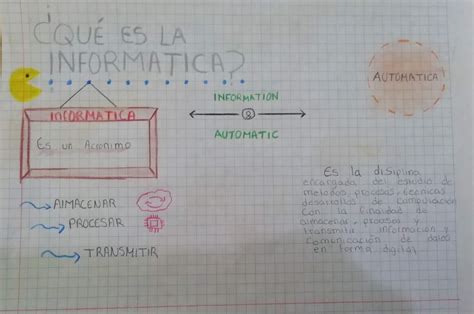 ¿QUÉ ES LA
INFORMATICA?
AUTOMATICA
INFORMATION
&
AUTOMATIC
INFORMATICA
Es un Acronimo
ALMACENAR
PROCESAR
TRANSMITIR
Es la disiplina
encargada del estudio de
metodos, procesos, tecnicas
desarrollos de computación
Con la finalidad de
almacenar, procesos y
transmita informacion y
Comunicación de datos
en forma digital